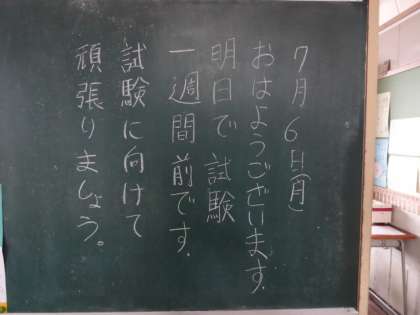 7月6日(月)
おはようございます.
明日で試験
一週間前です.
試験に向けて
頑張りましょう。